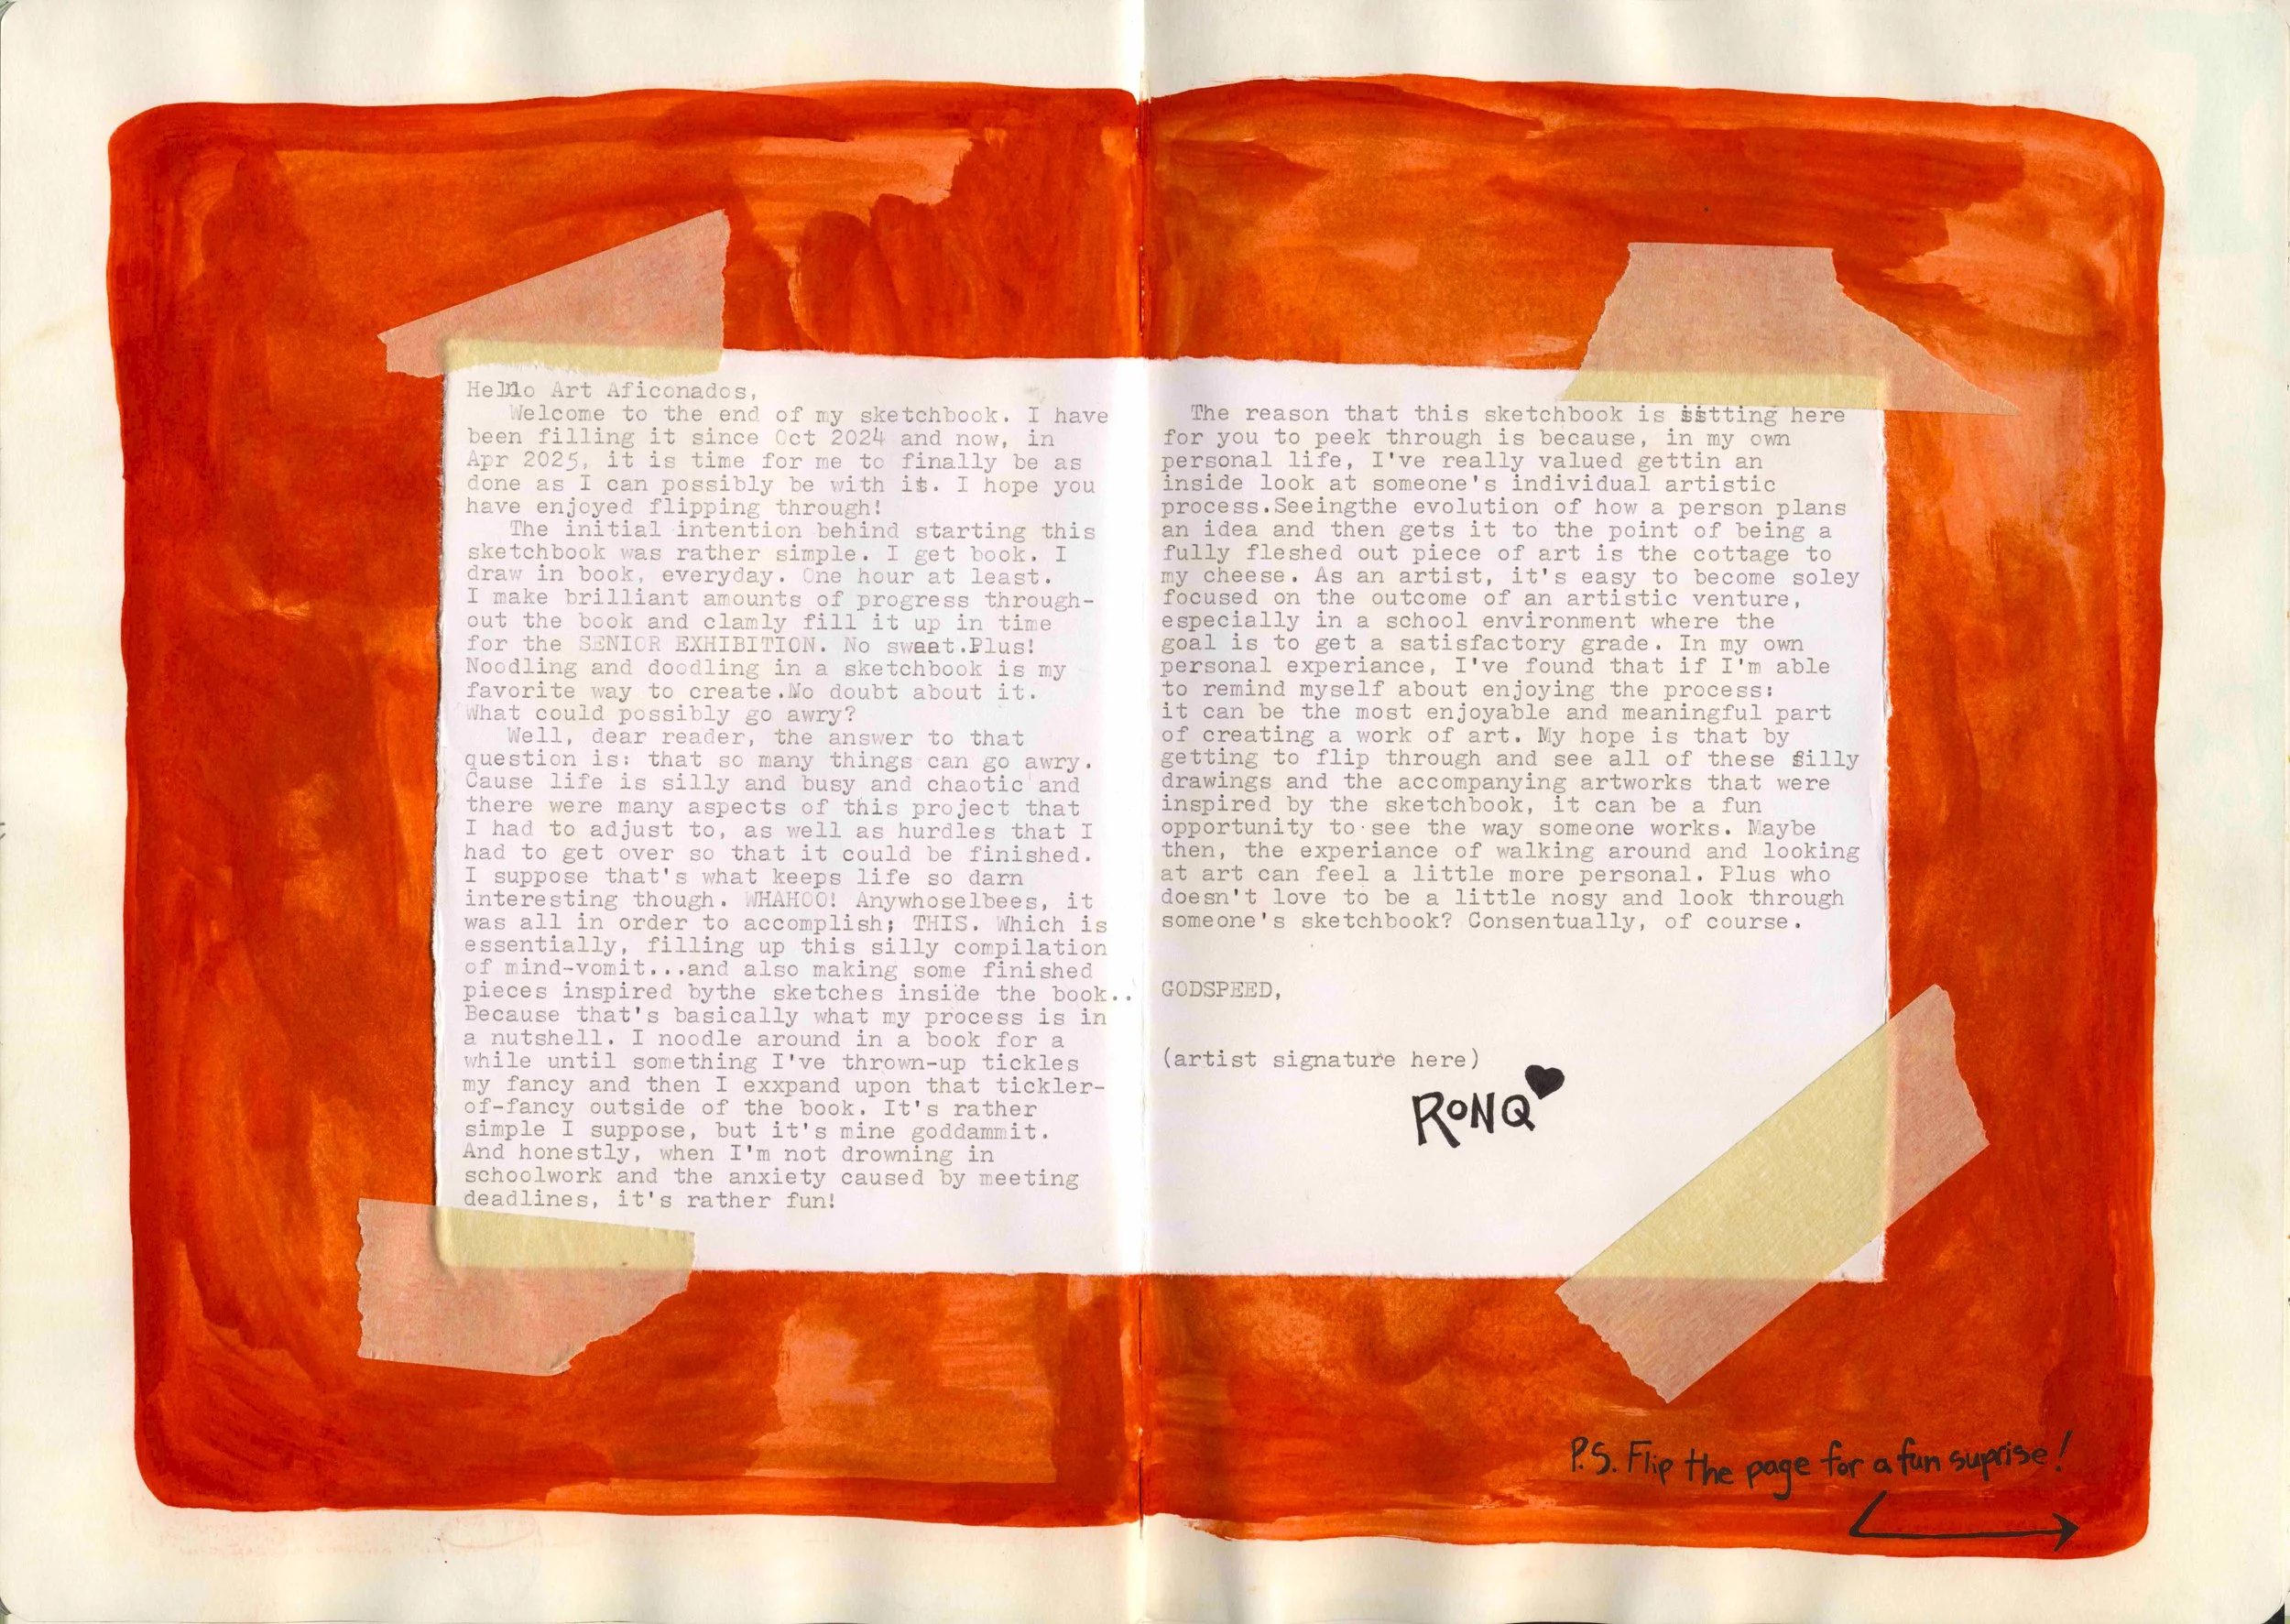 Hello Art Aficonados,
Welcome to the end of my sketchbook. I have
been filling it since Oct 2024 and now, in
Apr 2025, it is time for me to finally be as
done as I can possibly be with it. I hope you
have enjoyed flipping through!
The initial intention behind starting this
sketchbook was rather simple. I get book. I
draw in book, everyday. One hour at least.
I make brilliant amounts of progress through-
out the book and clamly fill it up in time
for the SENIOR EXHIBITION. No swaat.Plus!
Noodling and doodling in a sketchbook is my
favorite way to create.No doubt about it.
What could possibly go awry?
Well, dear reader, the answer to that
question is: that so many things can go awry.
Cause life is silly and busy and chaotic and
there were many aspects of this project that
I had to adjust to, as well as hurdles that I
had to get over so that it could be finished.
I suppose that's what keeps life so darn
interesting though. WHAHOO! Anywhoselbees, it
was all in order to accomplish; THIS. Which is
essentially, filling up this silly compilation
of mind-vomit...and also making some finished
pieces inspired bythe sketches inside the book..
Because that's basically what my process is in
a nutshell. I noodle around in a book for a
while until something I've thrown-up tickles
my fancy and then I exxpand upon that tickler-
of-fancy outside of the book. It's rather
simple I suppose, but it's mine goddammit.
And honestly, when I'm not drowning in
schoolwork and the anxiety caused by meeting
deadlines, it's rather fun!
The reason that this sketchbook is sitting here
for you to peek through is because, in my own
personal life, I've really valued gettin an
inside look at someone's individual artistic
process.Seeingthe evolution of how a person plans
an idea and then gets it to the point of being a
fully fleshed out piece of art is the cottage to
my cheese. As an artist, it's easy to become soley
focused on the outcome of an artistic venture,
especially in a school environment where the
goal is to get a satisfactory grade. In my own
personal experiance, I've found that if I'm able
to remind myself about enjoying the process:
it can be the most enjoyable and meaningful part
of creating a work of art. My hope is that by
getting to flip through and see all of these silly
drawings and the accompanying artworks that were
inspired by the sketchbook, it can be a fun
opportunity to see the way someone works. Maybe
then, the experiance of walking around and looking
at art can feel a little more personal. Plus who
doesn't love to be a little nosy and look through
someone's sketchbook? Consentually, of course.
GODSPEED,
(artist signature here)
RONQ
P.S. Flip the page for a fun suprise!